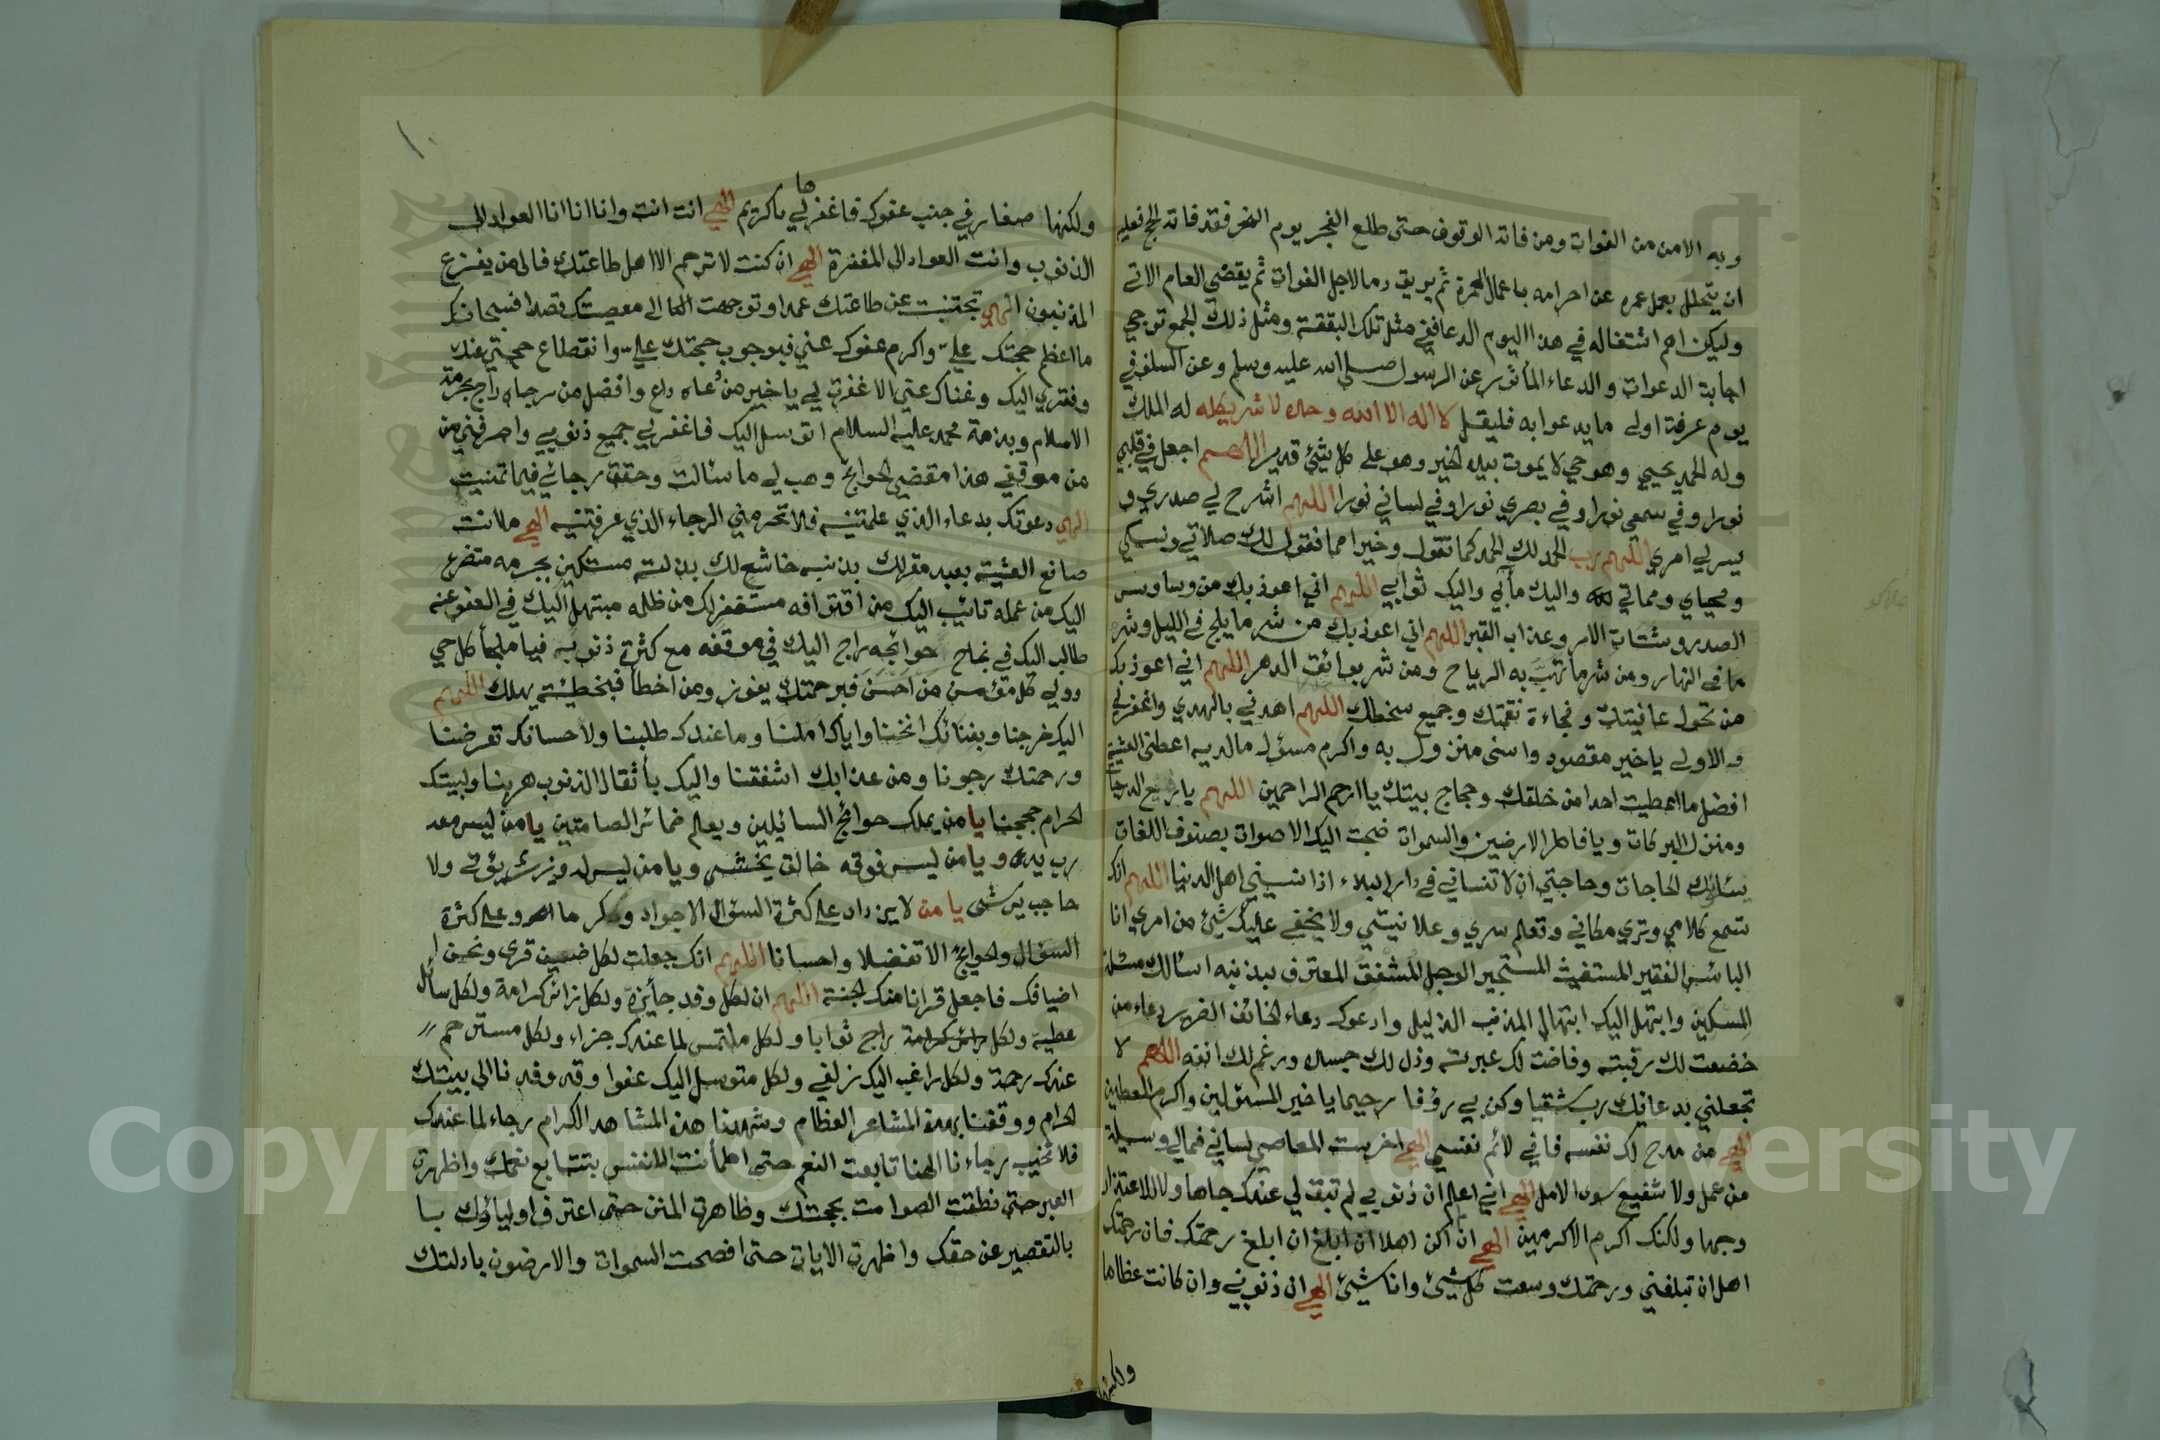 وبه الامن من الفوات ومن فاته الوقوف حتى طلع الفجر يوم النحر فقد فاته الحج فعليه
ان يتحلل بعمل عمره عن احرامه باعمال العمرة ثم يريق دما لاجل الفوات ثم يقضي العام الاتي
وليكن اهم اشتغاله في هذا اليوم الدعا ففي مثل تلك البقعة ومثل ذلك الجمع ترجى
اجابة الدعوات والدعاء المأثور عن الرسول صلى الله عليه وسلم وعن السلف في
يوم عرفة اولى ما يدعوا به فليقل لا اله الا الله وحده لا شريك له له الملك
وله الحمد يحيي وهو حي لا يموت بيده الخير وهو على كل شيئ قدير اللهم اجعل في قلبي
نورا وفي سمعي نورا وفي بصري نورا وفي لساني نورا اللهم اشرح لي صدري و
يسر لي امري اللهم رب الحمد لك الحمد كما تقول وخيرا مما نقول لك صلاتي ونسكي
ومحياي ومماتي واليك مآبي واليك ثوابي اللهم اني اعوذ بك من وساوس
الصدر وشتات الامر وعذاب القبر اللهم اني اعوذ بك من شر ما يلج في الليل وشر
ما في النهار ومن شر ما تهب به الرياح ومن شر بوائق الدهر اللهم اني اعوذ بك
من تحول عافيتك وفجاءة نقمتك وجميع سخطك اللهم اهدني بالهدي واغفر لي
والاولى يا خير مقصود واسنى منزول به واكرم مسؤل ما لديه اعطني العشية
افضل ما اعطيت احدا من خلقك وحجاج بيتك يا ارحم الراحمين اللهم يا رفيع الدرجات
ومنزل البركات ويا فاطر الارضين والسموات ضجت اليك الاصوات بصنوف اللغات
يسئلونك الحاجات وحاجتي ان لا تنساني في دار البلاء اذا نسيني اهل الدنيا اللهم انك
تسمع كلامي وترى مكاني وتعلم سري وعلانيتي ولا يخفى عليك شيئ من امري انا
البائس الفقير المستغيث المستجير الوجل المشفق المعترف بذنبه اسالك مسئلة
المسكين وابتهل اليك ابتهال المذنب الذليل وادعوك دعاء الخائف الضرير دعاء من
خضعت لك رقبته وفاضت لك عبرته وذل لك جسده ورغم لك انفه اللهم لا
تجعلني بدعائك رب شقيا وكن بي رؤفا رحيما يا خير المسئولين واكرم المعطين
الهي من مدح لك نفسه فاني لائم نفسي الهي اخرست المعاصي لساني فمالي وسيلة
من عمل ولا شفيع سوى الامل الهي اني اعلم ان ذنوبي لم تبق لي عندك جاها ولا للاعتذار
وجها ولكنك اكرم الاكرمين الهي ان لم اكن اهلا ان ابلغ ان ابلغ رحمتك فان رحمتك
اهل ان تبلغني ورحمتك وسعت كل شيئ وانا شيئ الهي ان ذنوبي وان كانت عظاما
ولكنها
١٠
ولكنها صغار في جنب عفوك فاغفر ها لي يا كريم الهي انت انت وانا انا انا العواد الى
الذنوب وانت العواد الى المغفرة الهي ان كنت لا ترحم الا اهل طاعتك فالى من يفزع
المذنبون الهي تجنبت عن طاعتك عمدا وتوجهت الى معصيتك قصدا فسبحانك
ما اعظم حجتك علي واكرم عفوك عني فبوجوب حجتك علي وانقطاع حجتي عنك
وفقري اليك وغناك عني الا غفرت لي يا خير من دعاه داع وافضل من رجاه راج بحرمة
الاسلام وبذمة محمد عليه السلام اتوسل اليك فاغفر لي جميع ذنوبي واصرفني من
من موقفي هذا مقضي الحوائج وهب لي ما سالت وحقق رجائي فيما تمنيت
الهي دعوتك بدعاء الذي علمتنيه فلا تحرمني الرجاء الذي عرفتنيه الهي ما انت
صانع العشية بعبد مقر لك بذنبه خاشع لك بذلته مستكين بجرمه متضرع
اليك من عمله تائب اليك من اقترافه مستغفر لك من ظلمه مبتهل اليك في العفو عنه
طالب اليك في نجاح حوائجه راج اليك في موقفه مع كثرة ذنوبه فيا ملجأ كل حي
وولي كل مؤمن من احسن فبرحمتك يفوز ومن اخطأ فبخطيئته يهلك اللهم
اليك خرجنا وبفنائك انخنا واياك املنا وما عندك طلبنا ولاحسانك تعرضنا
ورحمتك رجونا ومن عذابك اشفقنا واليك بأثقال الذنوب هربنا ولبيتك
الحرام حججنا يا من يملك حوائج السائلين ويعلم ضمائر الصامتين يا من ليس معه
رب يدعى ويا من ليس فوقه خالق يخشى ويا من ليس له وزير يؤتى ولا
حاجب يرشى يا من لا يزداد على كثرة السؤال الا جوادا وكرما وعلى كثرة
السؤال والحوائج الا تفضلا واحسانا اللهم انك جعلت لكل ضيف قرى ونحن
اضيافك فاجعل قرانا منك الجنة اللهم ان لكل وفد جائزة ولكل زائر كرامة ولكل سائل
عطية ولكل راج ثوابا ولكل ملتمس لما عندك جزاء ولكل مسترحم
عندك رحمة ولكل راغب اليك زلفى ولكل متوسل اليك عفوا وقد وفدنا الى بيتك
الحرام ووقفنا بهذه المشاعر العظام وشهدنا هذه المشاهد الكرام رجاء لما عندك
فلا تخيب رجاءنا الهنا تابعت النعم حتى اطمأنت الانفس بتتابع نعمك واظهرت
العبر حتى نطقت الصوامت بحجتك وظاهرت المنن حتى اعترف اولياؤك با
بالتقصير عن حقك واظهرت الايات حتى افصحت السموات والارضون بادلتك
Copyright © King Saud University